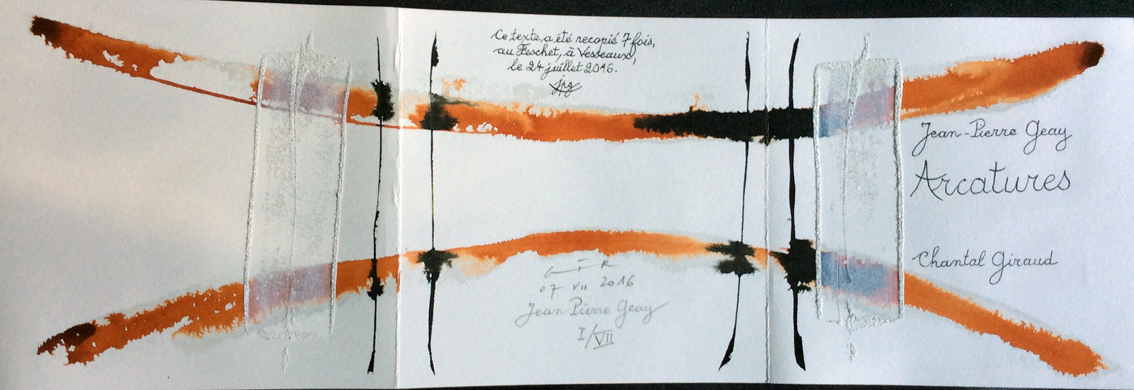 Ce texte a été recopié 7 fois,
au Feschet, à Vesseaux,
le 24 juillet 2016.
jpg
Jean-Pierre Geay
Arcatures
Chantal Giraud
GIR
07 VII 2016
Jean Pierre Geay
I/VII